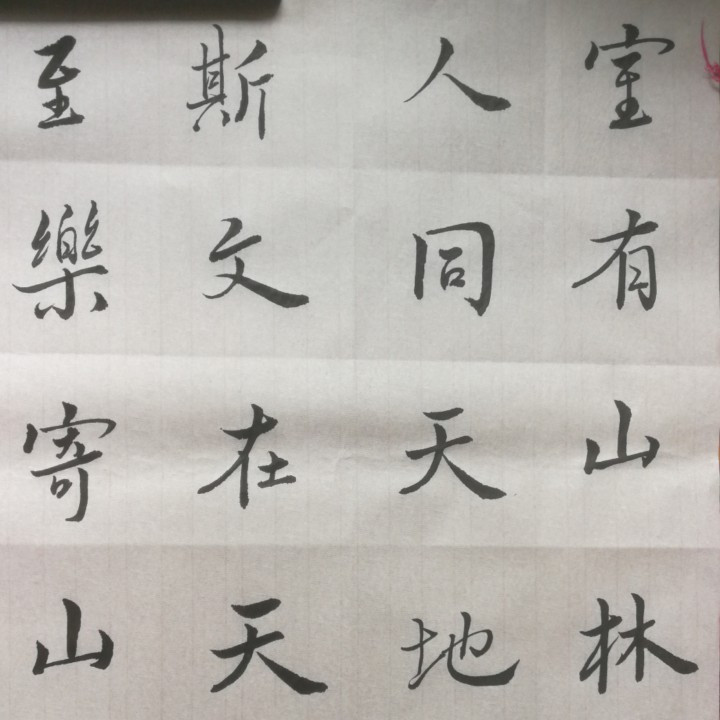 室有山林
人同天地
斯文在天
至樂寄山